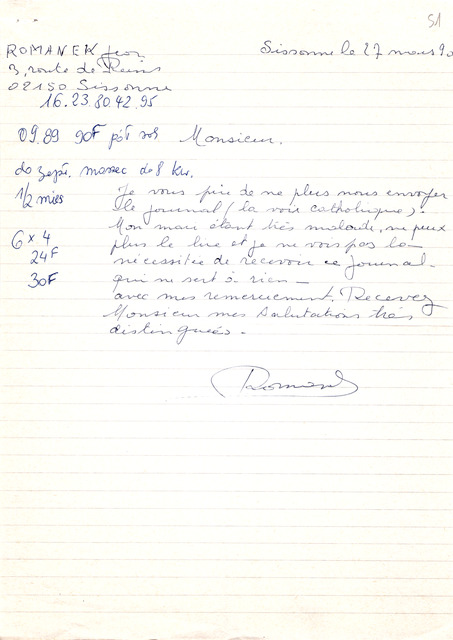 51
ROMANEK Jean
Sissonne le 27 mars 90
3, route de Reims
02150 Sissonne
16.23.80.42.95
09.89 90F pół
Monsieur.
do
1/2 mies
Je vous prie de ne plus nous envoyer
le journal (la voix catholique).
Mon mari étant très malade, ne peux
6 x 4
plus le lire et je ne vois pas la
24F
nécessitée de recevoir ce journal
30F
qui ne sert à rien —
avec mes remerciement. Recevez
Monsieur mes salutations très
distinguées.
Romanek